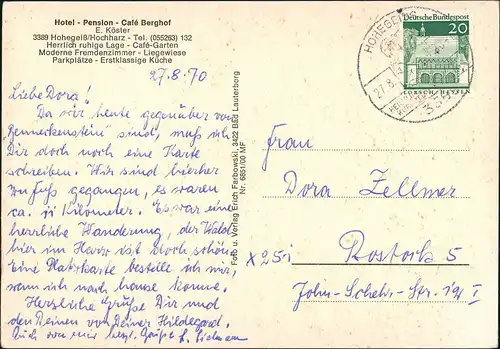 Hotel - Pension - Café Berghof
E. Köster
3389 Hohegeiß/Hochharz - Tel. (055263) 132
Herrlich ruhige Lage - Café-Garten
Moderne Fremdenzimmer - Liegewiese
Parkplätze - Erstklassige Küche
27.8.70
Liebe Dora!
Da wir heute gegenüber von
"Benneckenstein" sind, muß ich
Dir doch noch eine Karte
schreiben. Wir sind hierher
zu Fuß gegangen, es waren
ca. 11 Kilometer. Es war eine
herrliche Wanderung, der Wald
hier im Harz ist doch schön.
Eine Platzkarte bestelle ich mir,
wenn ich nach hause komme.
Herzliche Grüße Dir und
den Deinen von Deiner Hildegard.
Auch von mir herzl. Grüße
Foto u. Verlag Erich Farbowski, 3422 Bad Lauterberg
Nr. 6851/00 MF
HOHEGEISS
27.8.
Deutsche Bundespost
20
LORSCH · HESSEN
Frau
Dora Zellmer
x 25i
Rostock 5
John-Schehr-Str.